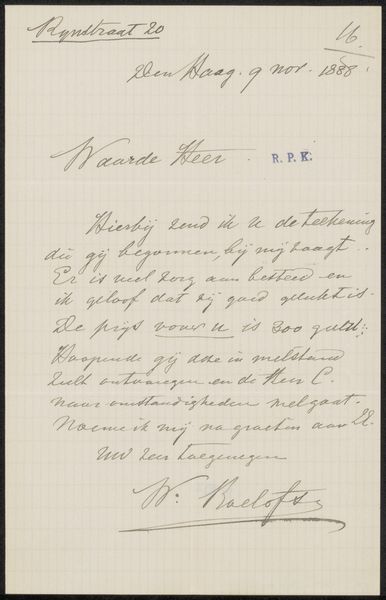 Rynstraat 20
16
Den Haag. 9 nov. 1888
Waarde Heer
R. P. K.
Hierbij zend ik U de teekening
die gij begonnen, bij mij zaagt..
Er is veel zorg aan besteed en
ik geloof dat zij goed gelukt is.
De prijs voor U is 300 guld:
Hoopende gij deze in welstand
zult ontvangen en de Heer C.
naar omstandigheden wel gaat.
Noem ik mij na groeten aan ZE.
UW zeer toegenegen
W. Roelofs